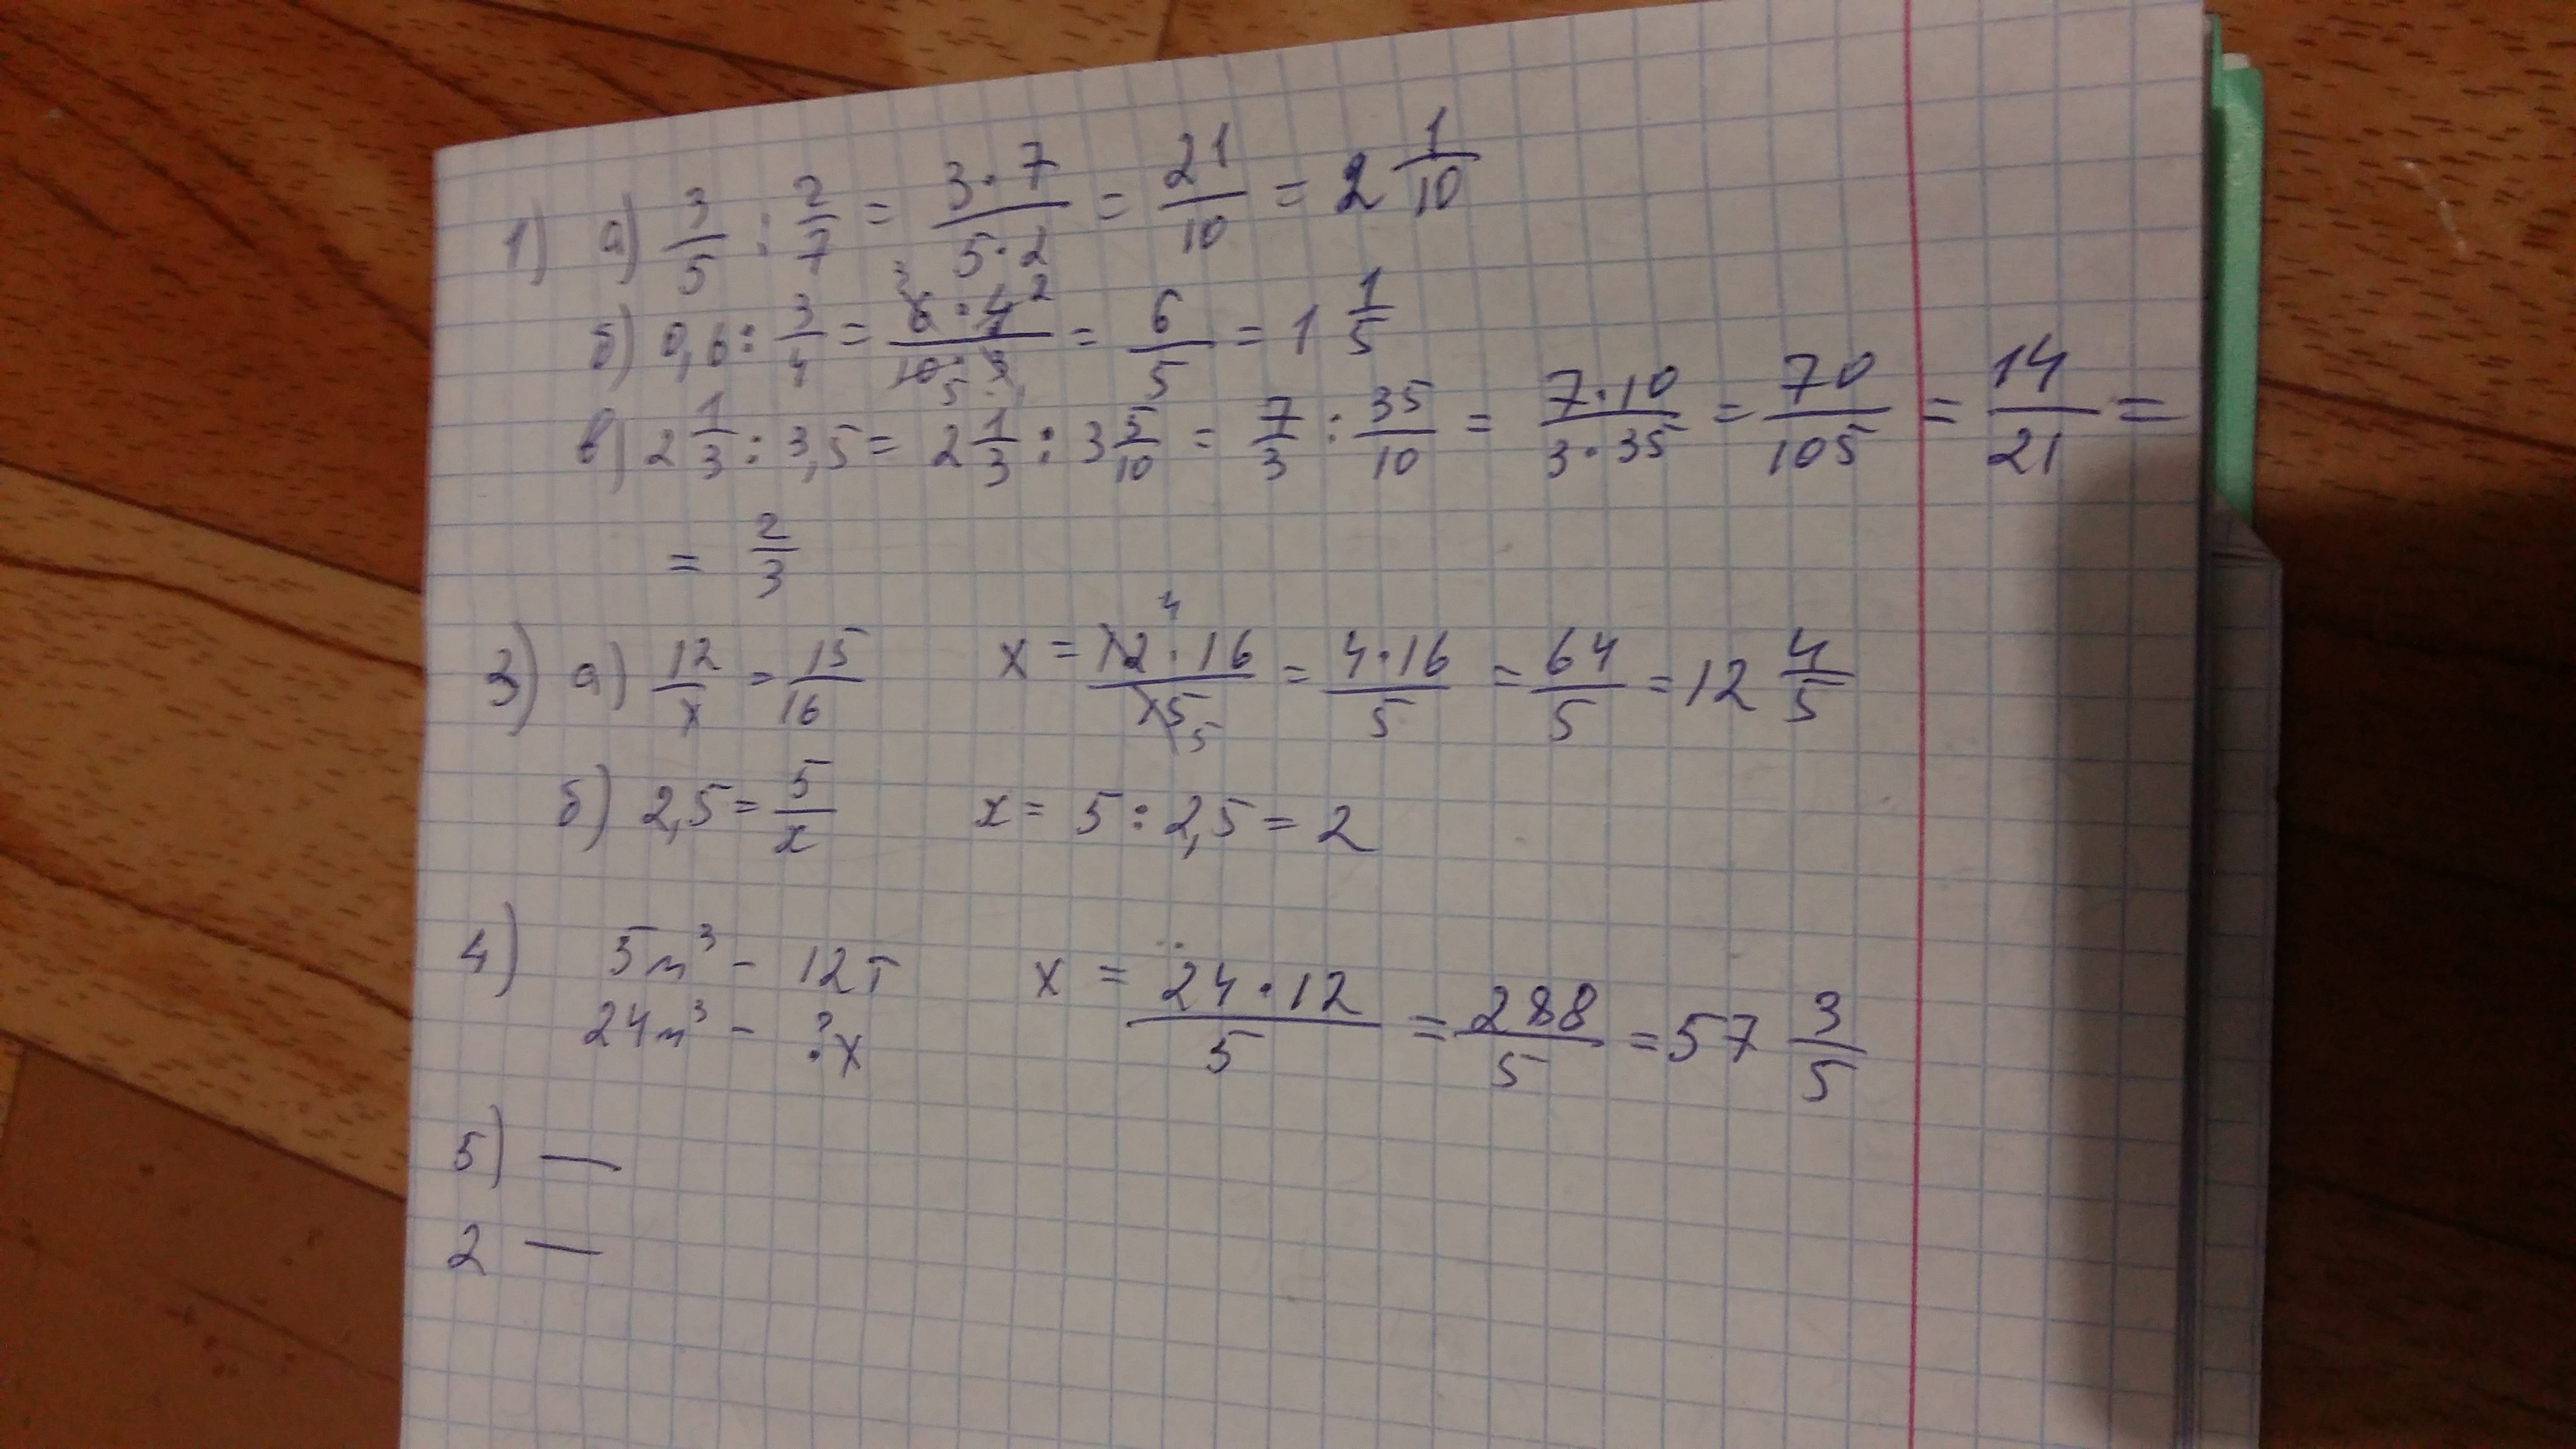 1) а) 3/5 : 2/7 = 3·7/5·2 = 21/10 = 2 1/10
б) 0,6 : 3/4 = 6·4/10·3 = 6/5 = 1 1/5
в) 2 1/3 : 3,5 = 2 1/3 : 3 5/10 = 7/3 : 35/10 = 7·10/3·35 = 70/105 = 14/21 =
= 2/3
3) а) 12/x = 15/16 x = 12·16/15 = 4·16/5 = 64/5 = 12 4/5
б) 2,5 = 5/x x = 5 : 2,5 = 2
4) 5м³ - 12т x = 24·12/5 = 288/5 = 57 3/5
24м³ - ? x
5) —
2 —